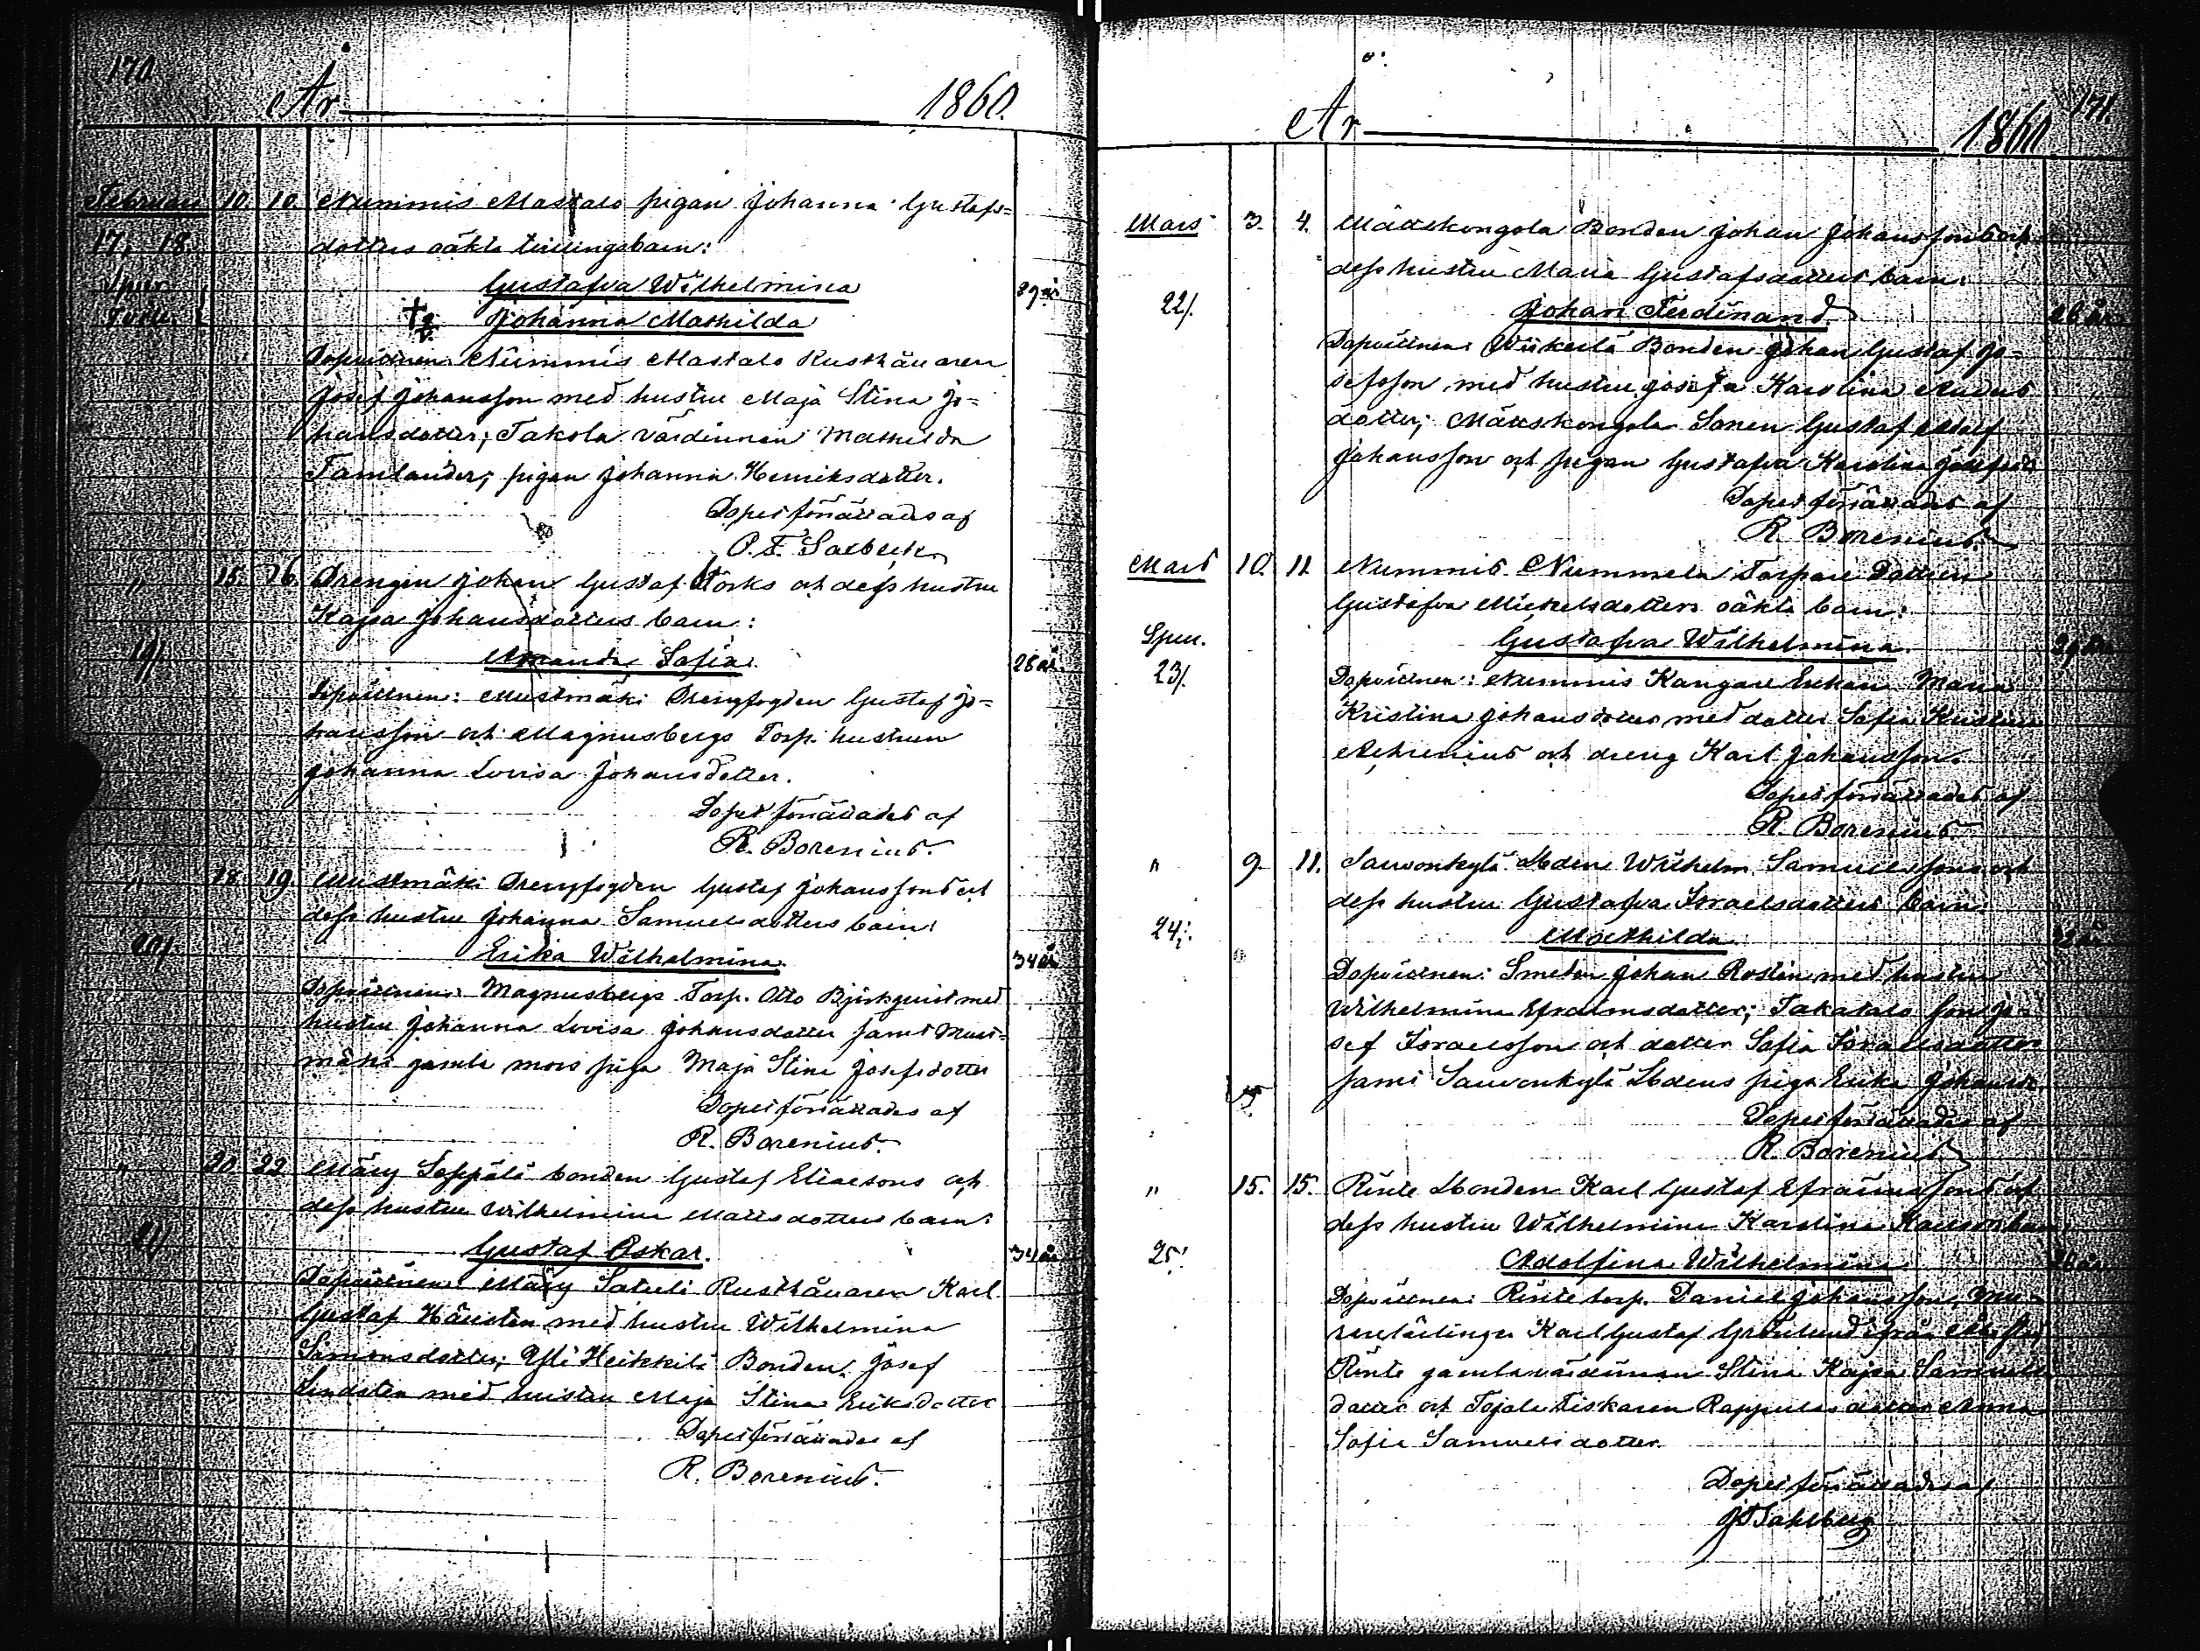 170
År 1860.
Februari 10. 10. Nummis Mastalo pigan Johanna Gustafs=
17, 18. dotters oäkta tvillingebarn:
Gustafva Wilhelmina 39 år
† Johanna Mathilda
Dopvittnen: Nummis Mastalo Rusthållaren
Josef Johansson med hustru Maja Stina Jo=
hansdotter; Takola värdinnan Mathilda
Tamlander; pigan Johanna Henriksdotter.
Dopet förrättades af
" 15. 16. Drengen Johan Gustaf Störks och dess hustru
Kajsa Johansdotters barn:
19/ Amanda Sofia. 28 år
Dopvittnen: Mustmäki Drengfogden Gustaf Jo=
hansson och Magnusbergs Torp. hustrun
Johanna Lovisa Johansdotter.
Dopet förrättades af
R. Borenius.
" 18. 19. Mustmäki Drengfogden Gustaf Johanssons och
dess hustru Johanna Samuelsdotters barn:
20/ Erika Wilhelmina. 34 år
Dopvittnen: Magnusbergs Torp. Otto Björkquist med
hustru Johanna Lovisa Johansdotter samt Must=
mäki gamla mors piga Maja Stina Josefsdotter
Dopet förrättades af
R. Borenius.
" 20. 22. Märy Seppälä bonden Gustaf Eliaesons och
dess hustru Wilhelmina Mattsdotters barn:
21/ Gustaf Oskar. 34 år
Dopvittnen: Märy Satuli Rusthållaren Karl
Gustaf Hällsten med hustru Wilhelmina
Simonsdotter; Yli Heikkilä Bonden Josef
Lindsten med hustru Maja Stina Eriksdotter
Dopet förrättades af
R. Borenius.
171.
År 1860
Mars 3. 4. Mättskongola Bonden Johan Johanssons och
dess hustru Maria Gustafsdotters barn:
22/. Johan Ferdinand 26 år
Dopvittnen: Wiikeilä Bonden Johan Gustaf Jo=
sefsson med hustru Josefa Karolina
dotter; Mättskongola Sonen Gustaf Adolf
Johansson och pigan Gustafva Karolina
Dopet förrättades af
R. Borenius.
Mars 10. 11. Nummis Nummela Torpare Dottren
Gustafva Mickelsdotters oäkta barn:
Spur. Gustafva Wilhelmina.
23/. Dopvittnen: Nummis Kangare Enkan Maria
Kristina Johansdotter med dotter Sofia Kristina
och dreng Karl Johansson.
Dopet förrättades af
R. Borenius
" 9. 11. Sauvonkylä Åboen Wilhelm Samuelssons och
dess hustru Gustafva Israelsdotters barn:
24/. Mathilda.
Dopvittnen: Smeden Johan Rostén med hustru
Wilhelmina Efraimsdotter; Takatalo son Jo=
sef Israelsson och dotter Sofia Israelsdotter
samt Sauvonkylä Åboens piga Erika
Dopet förrättades af
R. Borenius
" 15. 15. Rinte Bonden Karl Gustaf Efraimssons och
dess hustru Wilhelmina Karolina
25/. Adolfina Wilhelmina.
Dopvittnen: Rinte torp. Daniel Johansson,
Karl Gustaf Grönlund ifrån
Rinte gamla värdinnan Stina Kajsa Samuels
dotter och Tojala Anna
Sofia Samuelsdotter.
Dopet förrättades af